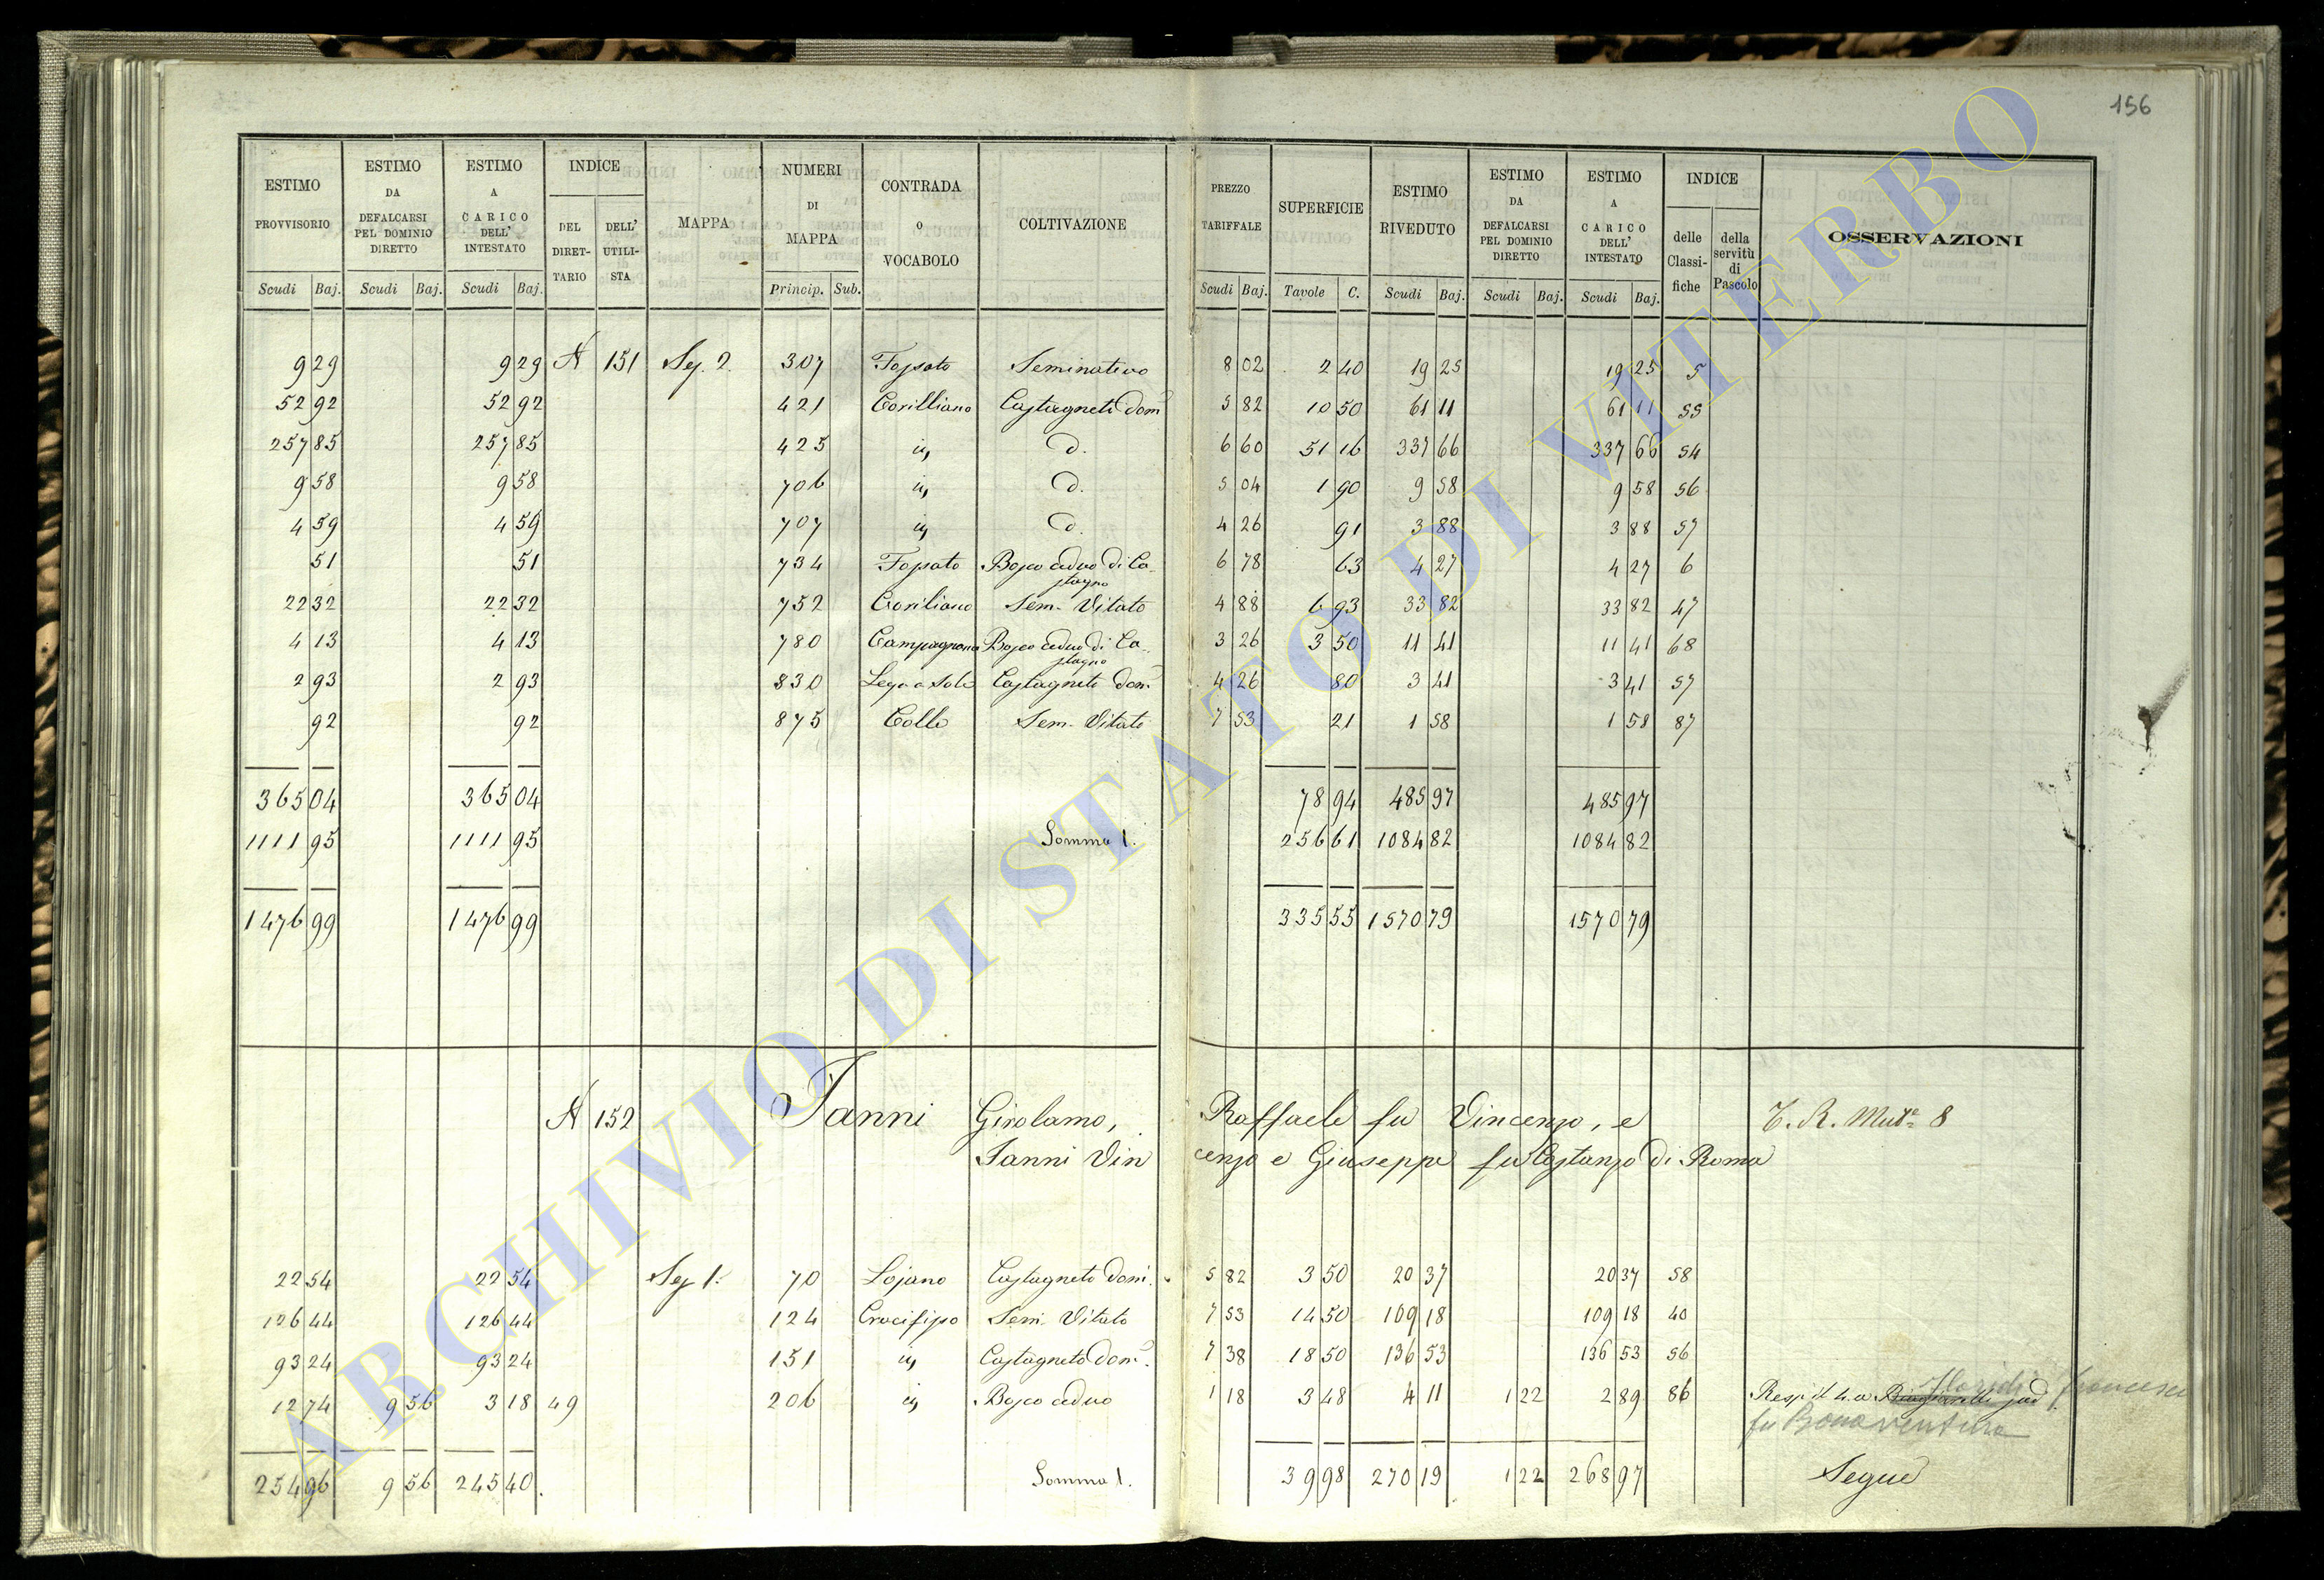 156
ESTIMO PROVVISORIO | ESTIMO DA DEFALCARSI PEL DOMINIO DIRETTO | ESTIMO A CARICO DELL' INTESTATO | INDICE | MAPPA | NUMERI DI MAPPA | CONTRADA O VOCABOLO | COLTIVAZIONE | PREZZO TARIFFALE | SUPERFICIE | ESTIMO RIVEDUTO | ESTIMO DA DEFALCARSI PEL DOMINIO DIRETTO | ESTIMO A CARICO DELL' INTESTATO | INDICE | OSSERVAZIONI
DEL DIRET-TARIO | DELL' UTILI-STA | delle Classi-fiche | della servitù di Pascolo
Scudi | Baj. | Scudi | Baj. | Scudi | Baj. | Princip. | Sub. | Scudi | Baj. | Tavole | C. | Scudi | Baj. | Scudi | Baj. | Scudi | Baj.
9 29 | 9 29 | N 151 | Sez. 2 | 307 | Fossato | Seminativo | 8 02 | 2 40 | 19 25 | 19 25 | 5
52 92 | 52 92 | 421 | Corilliano | Castagneto dom | 5 82 | 10 50 | 61 11 | 61 11 | 55
257 85 | 257 85 | 425 | id | d. | 6 60 | 51 16 | 337 66 | 337 66 | 54
9 58 | 9 58 | 706 | id | d. | 5 04 | 1 90 | 9 58 | 9 58 | 56
4 59 | 4 59 | 707 | id | d. | 4 26 | 91 | 3 88 | 3 88 | 57
51 | 51 | 734 | Fossato | Bosco ceduo di Ca-stagno | 6 78 | 63 | 4 27 | 4 27 | 6
22 32 | 22 32 | 752 | Coriliano | Sem. Vitato | 4 88 | 6 93 | 33 82 | 33 82 | 47
4 13 | 4 13 | 780 | Campagnana | Bosco ceduo di Ca-stagno | 3 26 | 3 50 | 11 41 | 11 41 | 68
2 93 | 2 93 | 830 | Castagneto dom. | 4 26 | 80 | 3 41 | 3 41 | 57
92 | 92 | 875 | Colle | Sem. Vitato | 7 53 | 21 | 1 58 | 1 58 | 87
365 04 | 365 04 | 78 94 | 485 97 | 485 97
1111 95 | 1111 95 | Somma 1. | 256 61 | 1084 82 | 1084 82
1476 99 | 1476 99 | 335 55 | 1570 79 | 1570 79
N 152 | Ianni Girolamo, Raffaele fu Vincenzo, e | T. R. Mut.e 8
Ianni Vincenzo e Giuseppe fu Costanzo di Roma
22 54 | 22 54 | Sez 1. | 70 | Lojano | Castagneto dom. | 5 82 | 3 50 | 20 37 | 20 37 | 58
126 44 | 126 44 | 124 | Crocifisso | Sem. Vitato | 7 53 | 14 50 | 109 18 | 109 18 | 40
93 24 | 93 24 | 151 | id | Castagneto dom. | 7 38 | 18 50 | 136 53 | 136 53 | 56
12 74 | 9 56 | 3 18 | 49 | 206 | id | Bosco ceduo | 1 18 | 3 48 | 4 11 | 1 22 | 2 89 | 86 | francesco
fu Bonaventura
254 96 | 9 56 | 245 40 | Somma 1. | 39 98 | 270 19 | 1 22 | 268 97 | Segue
ARCHIVIO DI STATO DI VITERBO